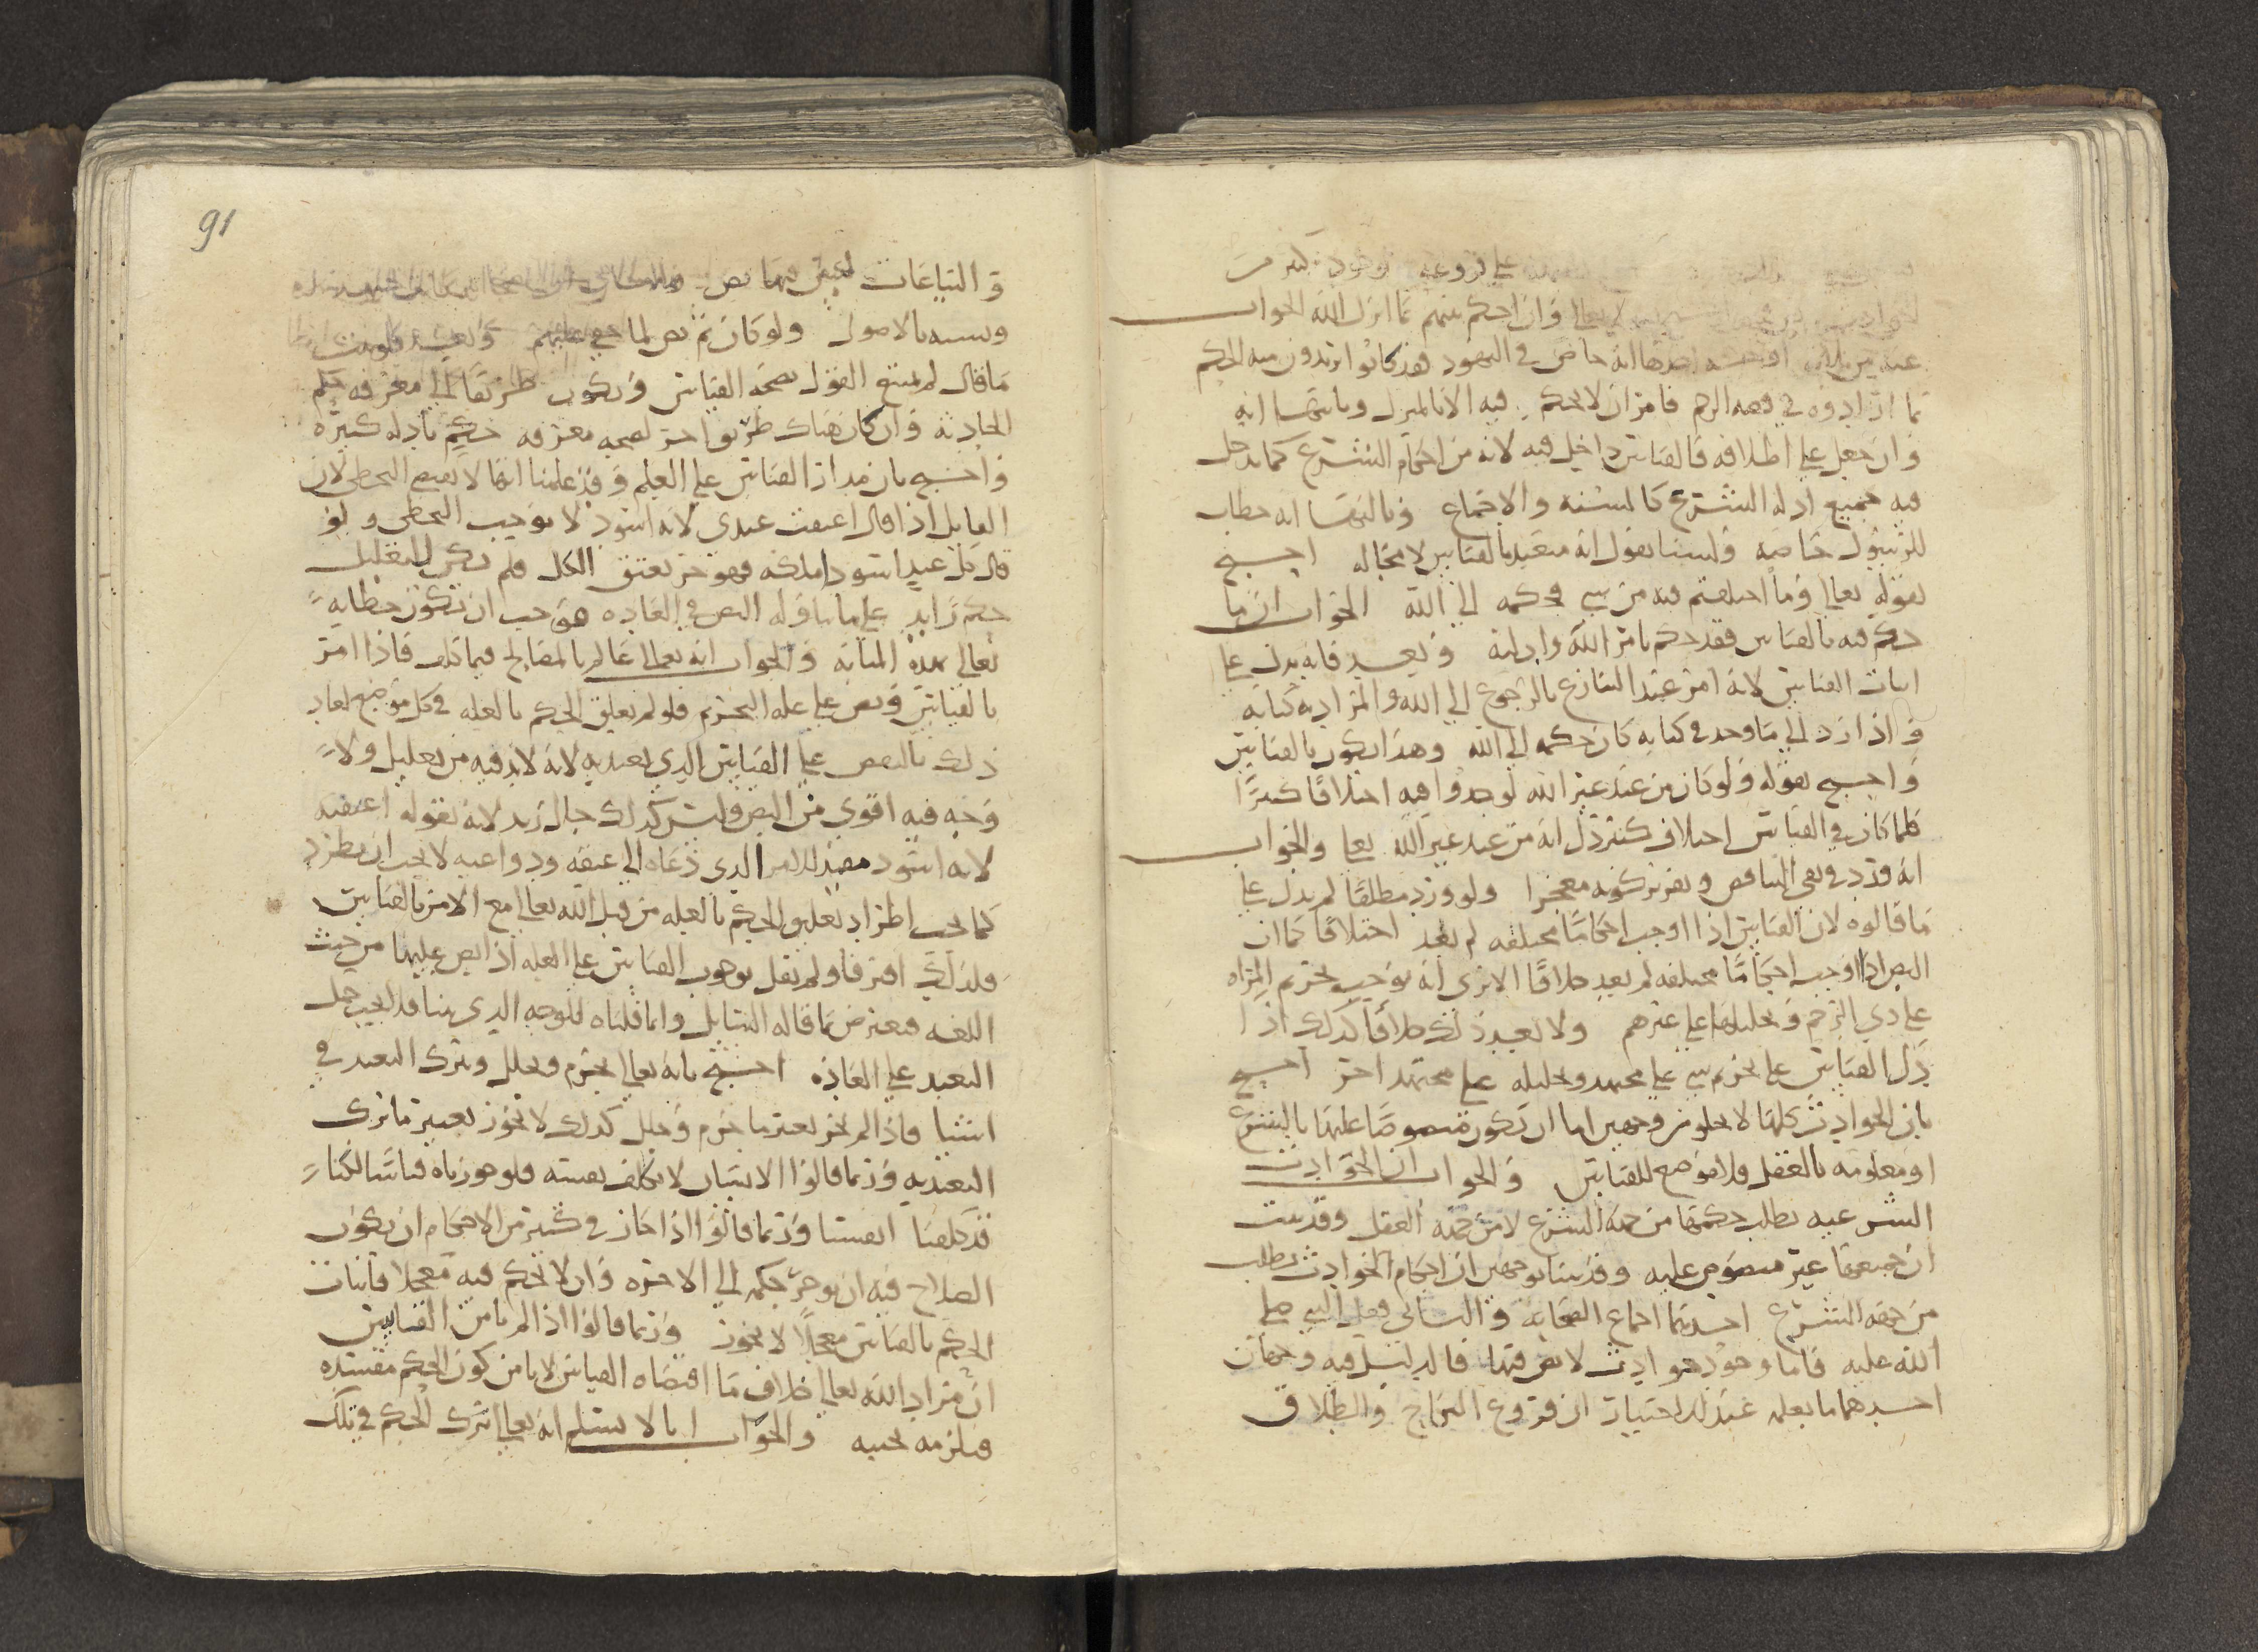 على فروعه
وان احكم بينهم بما انزل الله الجواب
عنه من احدها انه خاص في اليهود فقد كانوا يريدون منه الحكم
بما ارادوه في قصه الرجم فامر ان لا يحكم فيه الا بالمنزل وثانيها انه
وان جعل على اطلاقه فالقياس داخل فيه لانه من احكام الشرع كما يدخل
فيه جميع ادله الشرع كالسنه والاجماع وثالثها انه خطاب
للرسول خاصه ولسنا نقول انه متعبد بالقياس لا محاله احتج
بقوله تعالى وما اختلفتم فيه من شي فحكمه الى الله الجواب ان ما
حكم فيه بالقياس فقد حكم بامر الله وادلته وبعد فانه يدل على
اثبات القياس لانه امر عند التنازع بالرجوع الى الله والمراد به كتابه
واذا رد الى ما وجد في كتابه كان حكمه الى الله وهذا يكون بالقياس
واحتج بقوله ولو كان من عند غير الله لوجدوا فيه اختلافا كثيرا
فلما كان في القياس اختلاف كثير دل انه من عند غير الله تعالى والجواب
انه ورد في نفي التناقض وتقرير كونه معجزا ولو ورد مطلقا لم يدل على
ما قالوه لان القياس اذا اوجب احكاما مختلفه لم يعد اختلافا كما ان
النص اذا اوجب احكاما مختلفه لم يعد خلافا الا ترى انه يوجب تحريم المراه
على ذي الرحم وتحليلها على غيرهم ولا يعد ذلك خلافا كذلك اذا
دل القياس على تحريم شي على مجتهد وتحليله على مجتهد اخر احتج
بان الحوادث كلها لا تخلو من وجهين اما ان تكون منصوصا عليها بالشرع
او معلومه بالعقل فلا موضع للقياس والجواب ان الحوادث
الشرعيه يطلب حكمها من جهه الشرع لا من جهه العقل وقد ثبت
ان جميعها غير منصوص عليه وقد بينا بوجهين ان احكام الحوادث تطلب
من جهه الشرع احدهما اجماع الصحابه والثاني فعل النبي صلى
الله عليه فاما وجود حوادث لا نص فيها فالدليل فيه وجهان
احدهما ما يعلم عند الاختيار ان فروع النكاح والطلاق
و البياعات ليس فيها نص
ونسبه بالاصول ولو كان ثم نص لما خفي عليهم وبعد فلو ثبت
ما قال لم يمنع القول بصحه القياس ويكون طريقا الى معرفه حكم
الحادثه وان كان هناك طريق اخر لصحه معرفه حكم بادله كثيره
واحتج بان مدار القياس على العلم وقد علمنا انها لا تقتضي التخطي لان
القايل اذا قال اعتقت عبدي لانه اسود لا يوجب التخطي ولو
قال كل عبد اسود املكه فهو حر يعتق الكل فلم يكن للتعليل
حكم زايد على ما تناوله النص في العاده فوجب ان تكون خطابه
تعالى بهذه المثابه والجواب انه تعالى عالم بالمصالح فيما كلف فاذا امر
بالقياس ونص على عله التحريم فلو لم يعلق الحكم بالعله في كل موضع لعاد
ذلك بالنقص على القياس الذي تعبد به لانه لا بد فيه من تعليل ولا
وجه فيه اقوى من النص وليس كذلك حال زيد لانه بقوله اعتقته
لانه اسود مقيد للامر الذي دعاه الى عتقه ودواعيه لا يجب ان تطرد
كما يجب اطراد تعليق الحكم بالعله من قبل الله تعالى مع الامر بالقياس
فلذلك افترقا ولم نقل بوجوب القياس على العله اذا نص عليها من حيث
اللغه فيعترض بما قاله السايل وانما قلناه للوجه الذي بينا فلا يجب حمل
التعبد على العاده احتج بانه تعالى يحرم ويحلل ويترك التعبد في
اشيا فاذا لم يجز تغيير ما حرم وحلل كذلك لا يجوز تغيير ما ترك
التعبد به وربما قالوا الانسان لا يكلف نفسه فلو جوزناه قياسا لكنا
قد كلفنا انفسنا وربما قالوا اذا جاز في كثير من الاحكام ان يكون
الصلاح فيه ان يوخر حكمه الى الاخره وان لا يحكم فيه معجلا فاثبات
الحكم بالقياس معجلا لا يجوز وربما قالوا اذا لم نامن القياس
ان مراد الله تعالى خلاف ما اقتضاه القياس لا نامن كون الحكم مفسده
فيلزمه تجنبه والجواب انا لا نسلم انه تعالى ترك الحكم في تلك
91